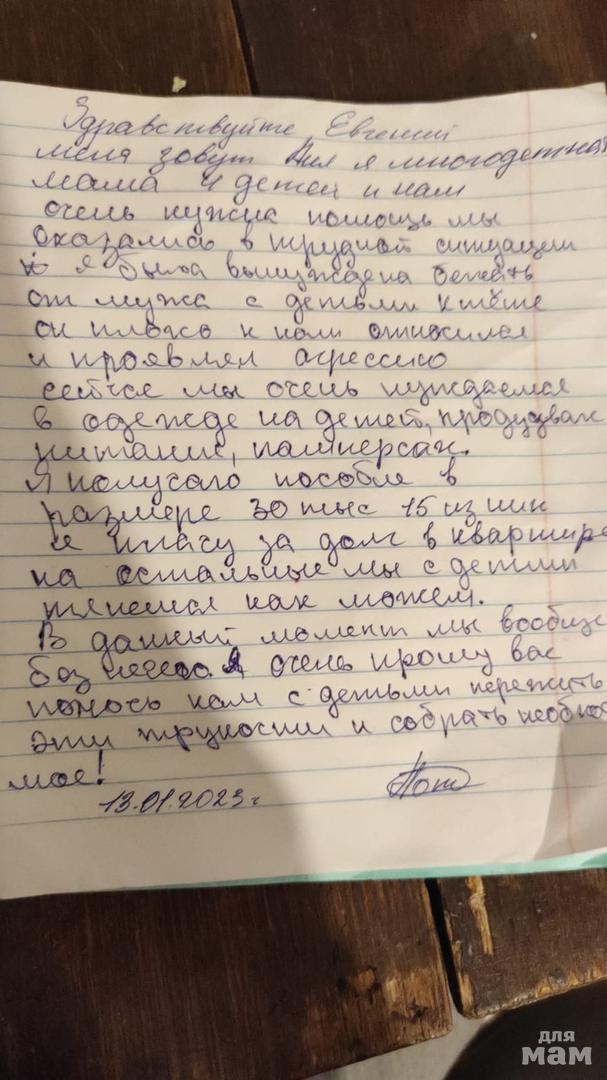 Здравствуйте, Евгений
меня зовут я многодетная
мама 4 детей и нам
очень нужна помощь мы
оказались в трудной ситуации
я была вынуждена бежать
от мужа с детьми к тёте
он плохо к нам относился
и проявлял агрессию
сейчас мы очень нуждаемся
в одежде на детей,
питание, памперсах.
Я получаю пособие в
размере 30 тыс 15 из них
я плачу за долг в квартире
на остальные мы с детьми
тянемся как можем.
В данный момент мы вообще
без нечего я очень прошу вас
помочь нам с детьми пережить
эти трудности и собрать необходи
мое!
13.01.2023 г
для
мам